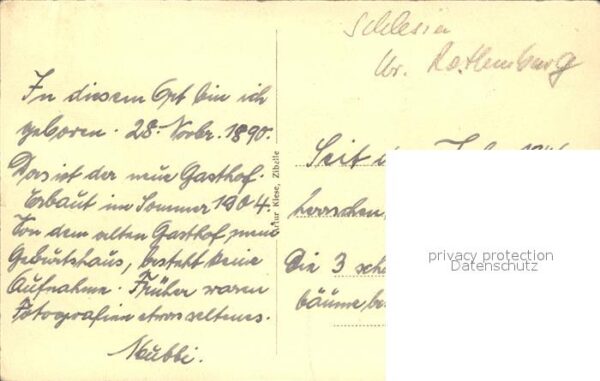 Schlesien
Kr. Rothenburg
In diesem Ort bin ich
geboren. 28. Novbr. 1890.
Das ist der neue Gasthof.
Erbaut im Sommer 1904.
Von dem alten Gasthof, mein
Geburtshaus, besteht keine
Aufnahme. Früher waren
Fotografien etwas seltenes.
Mubbi.
Artur Kiese, Zibelle
Seit
Die 3
bäume,
privacy protection
Datenschutz